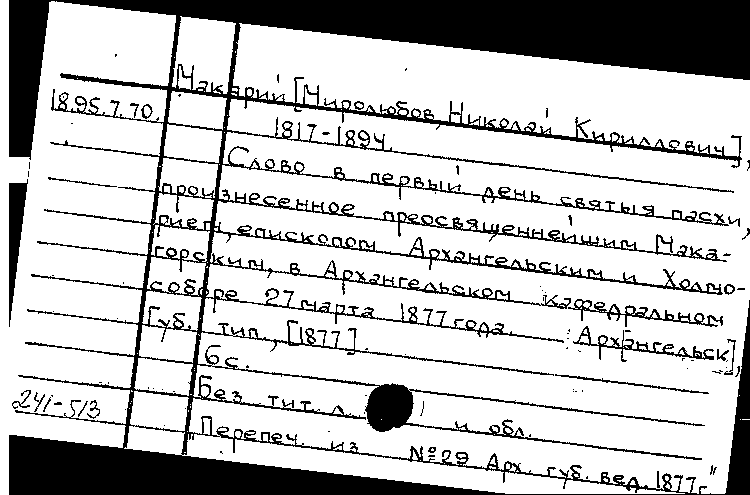 Макарий [Миролюбов, Николай Кириллович],
18.95.7.70.
1817-1894.
Слово в первый день святыя пасхи,
произнесенное преосвященнейшим Мака-
рием, епископом Архангельским и Холмо-
горским, в Архангельском кафедральном
соборе 27 марта 1877 года. Арх[ангельск],
Губ. тип., [1877].
6 с.
Без тит. л. и обл.
241-513
"Перепеч. из №29 Арх. губ. вед. 1877г."